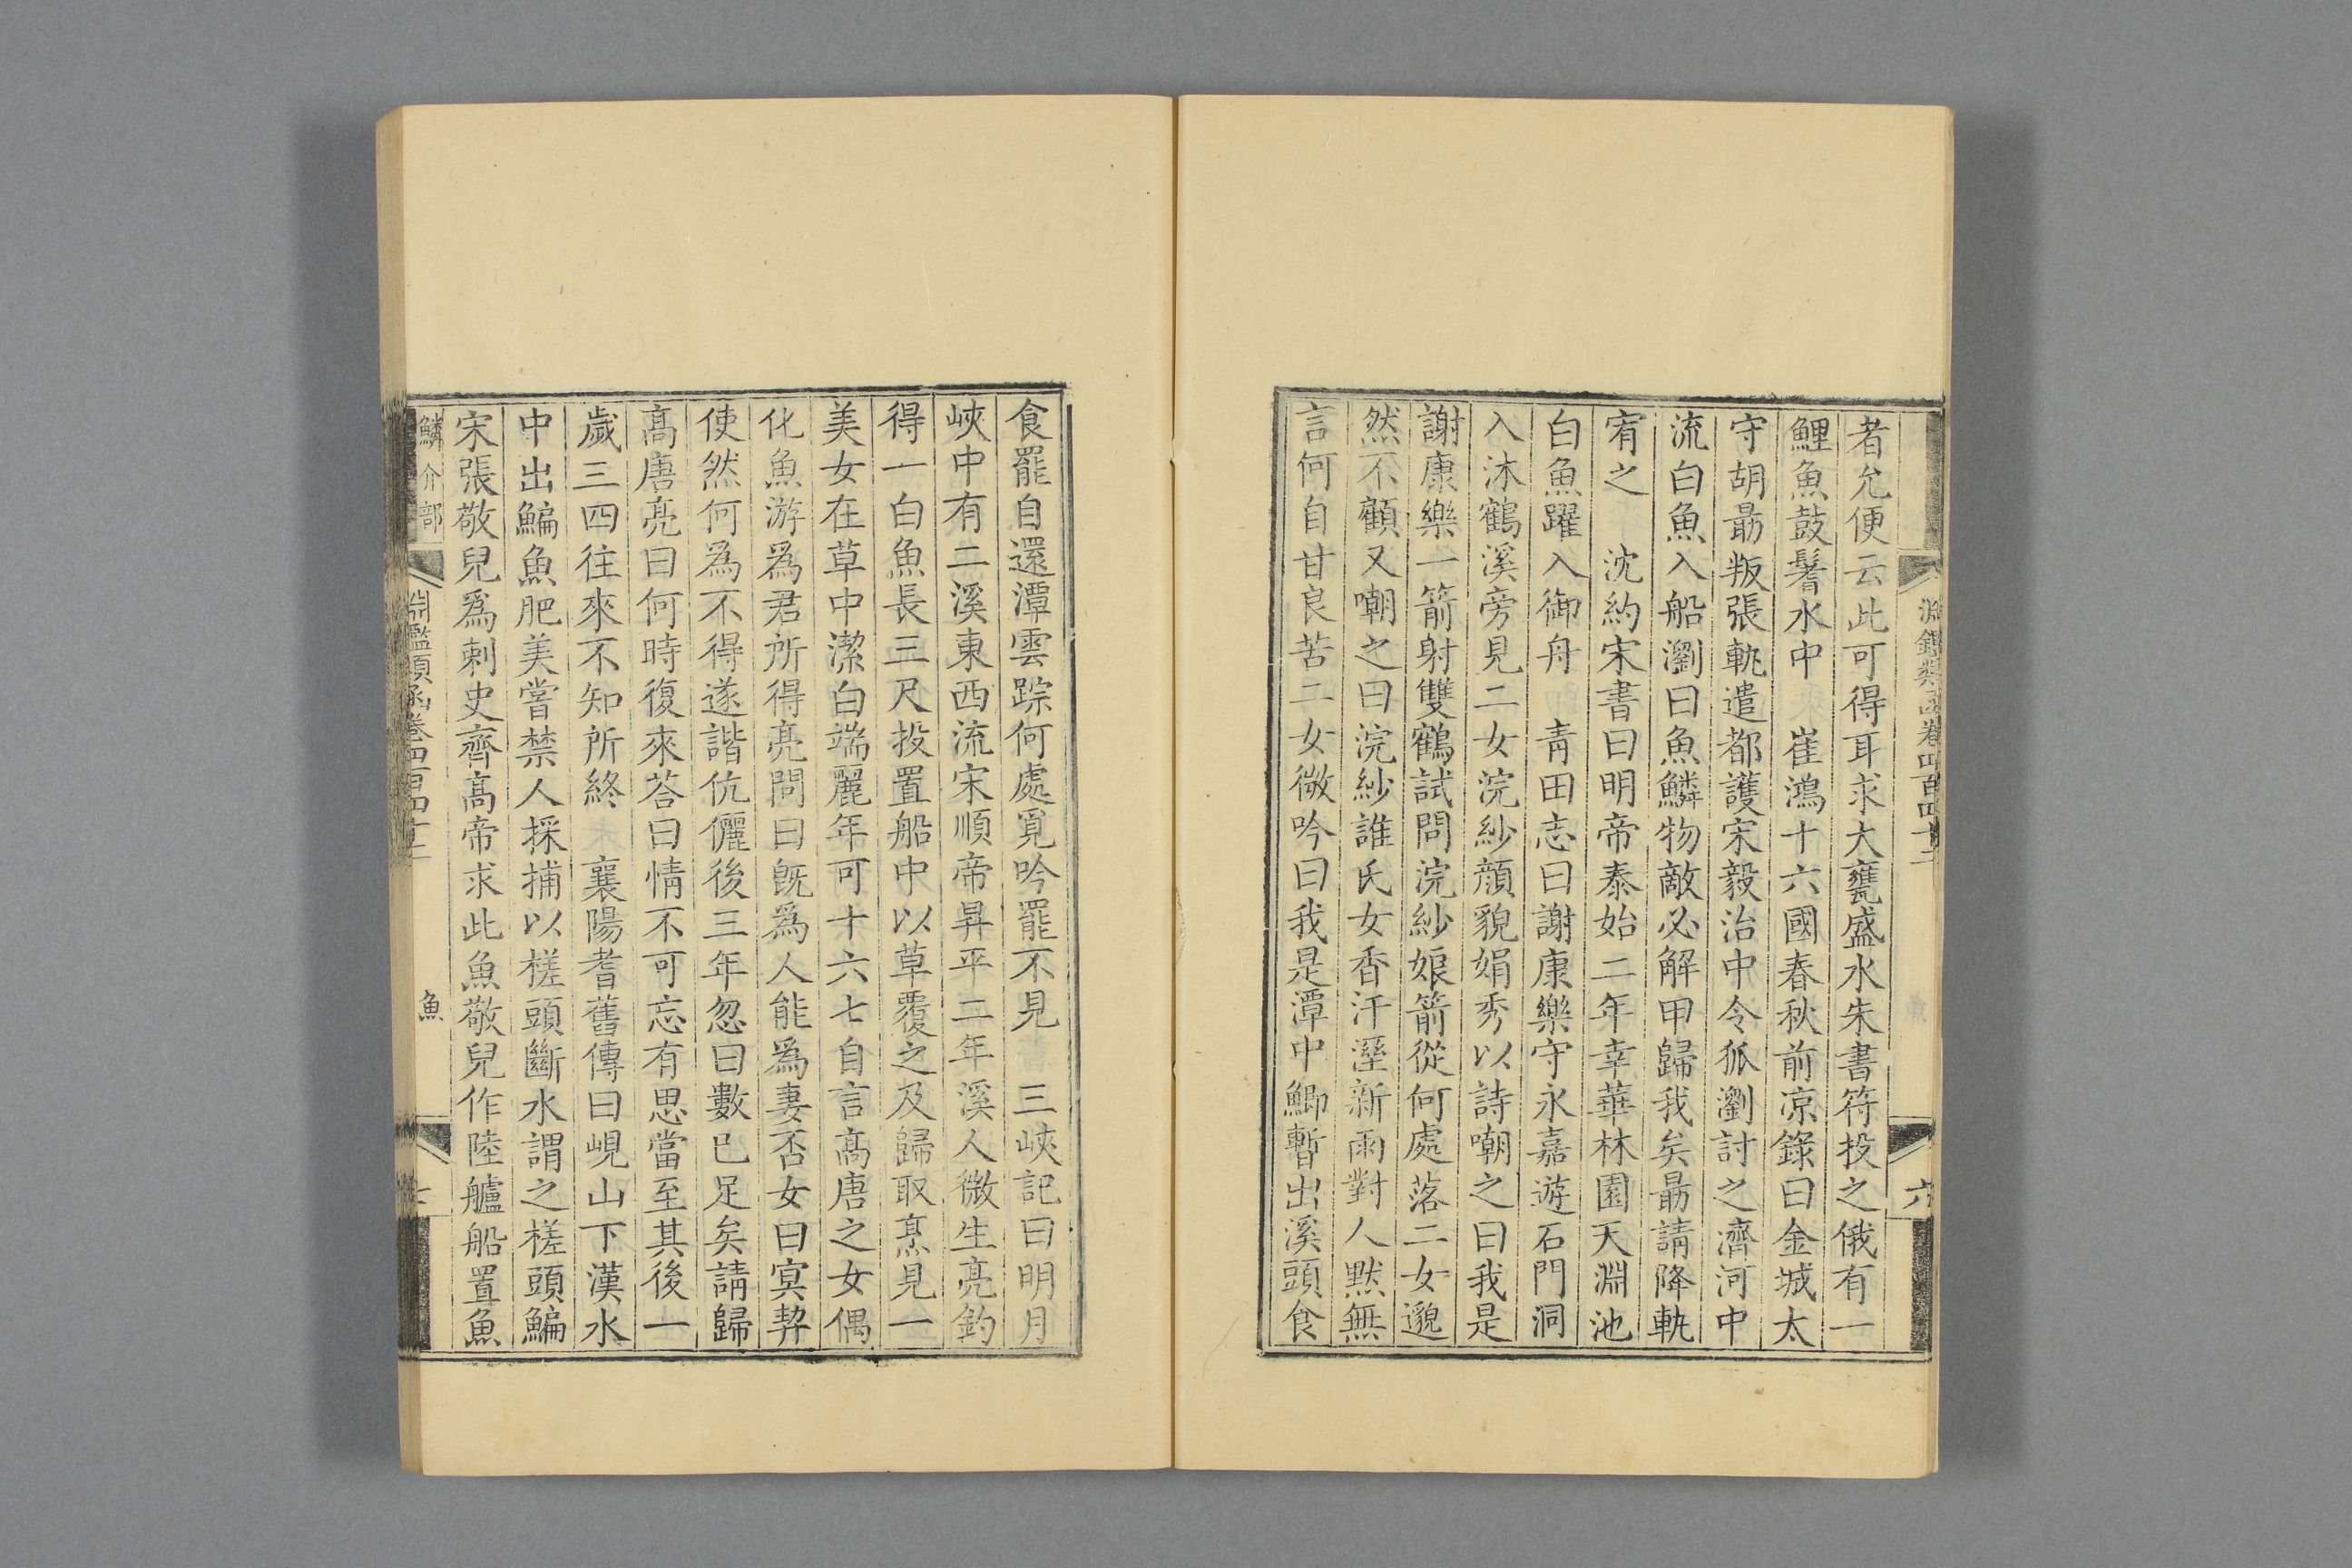 淵鑑類函卷四百四十二
六
者允便云此可得耳求大甕盛水朱書符投之俄有一
鯉魚鼓鬐水中 崔鴻十六國春秋前凉錄曰金城太
守胡勗叛張軌遣都護宋毅治中令狐瀏討之濟河中
流白魚入船瀏曰魚鱗物敵必解甲歸我矣勗請降軌
宥之 沈約宋書曰明帝泰始二年幸華林園天淵池
白魚躍入御舟 青田志曰謝康樂守永嘉遊石門洞
入沐鶴溪旁見二女浣紗顏貌娟秀以詩嘲之曰我是
謝康樂一箭射雙鶴試問浣紗娘箭從何處落二女邈
然不顧又嘲之曰浣紗誰氏女香汗溼新雨對人默無
言何自甘良苦二女微吟曰我是潭中鯽暫出溪頭食
食罷自還潭雲踪何處覓吟罷不見 三峽記曰明月
峽中有二溪東西流宋順帝昇平二年溪人微生亮釣
得一白魚長三尺投置船中以草覆之及歸取烹見一
美女在草中潔白端麗年可十六七自言高唐之女偶
化魚游爲君所得亮問曰旣爲人能爲妻否女曰冥契
使然何爲不得遂諧伉儷後三年忽曰數已足矣請歸
高唐亮曰何時復來荅曰情不可忘有思當至其後一
歲三四往來不知所終 襄陽耆舊傳曰峴山下漢水
中出鯿魚肥美嘗禁人採捕以槎頭斷水謂之槎頭鯿
宋張敬兒爲刺史齊高帝求此魚敬兒作陸艫船置魚
鱗介部
淵鑑類函卷四百四十二
魚
七